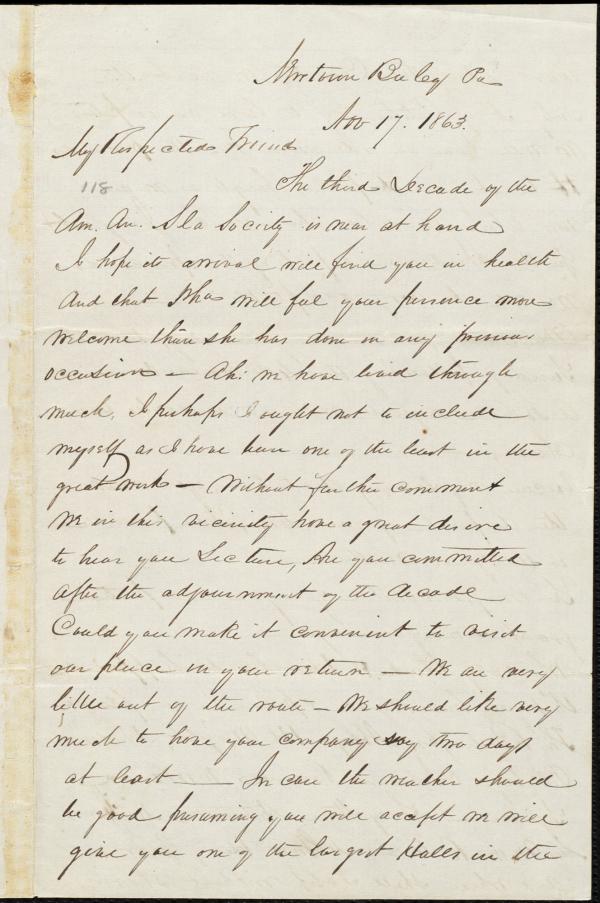 Newtown Bu Co Pa
Nov 17. 1863.
My Respected Friend
118
The third Decade of the
Am. An. Sla Society is near at hand
I hope its arrival will find you in health
And that Phia will feel your presence more
welcome than she has done on any previous
occasions — Ah! we have lived through
much, I perhaps I ought not to include
myself as I have been one of the least in the
great work — Without further comment
We in this vicinity have a great desire
to hear you Lecture, Are you committed
after the adjournment of the decade
Could you make it convenient to visit
our place in your return — We are very
little out of the route — We should like very
much to have your company say two days
at least — In case the weather should
be good presuming you will accept we will
give you one of the largest Halls in the